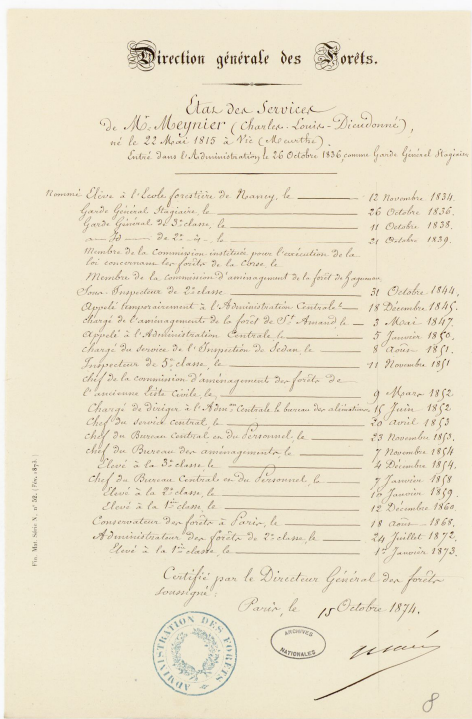 Direction générale des Forêts.
Etat des Services
de Mr Meynier (Charles-Louis-Dieudonné),
né le 22 Mai 1815 à Vic (Meurthe).
Entré dans l'Administration, le 26 Octobre 1836, comme Garde Général Stagiaire
Nommé Elève à l'Ecole forestière de Nancy, le 12 Novembre 1834.
Garde Général Stagiaire, le 26 Octobre 1836.
Garde Général de 3e classe, le 11 Octobre 1838.
a — Id — de 2e - d -, le 21 Octobre 1839.
Membre de la Commission instituée pour l'exécution de la
loi concernant les forêts de la Corse le
Membre de la commission d'aménagement de la forêt de Haguenau
Sous-Inspecteur de 2e classe 31 Octobre 1844.
Appelé temporairement à l'Administration Centrale 18 Décembre 1845.
chargé de l'aménagements de la forêt de St Amand le 3 Mai 1847.
Appelé à l'Administration Centrale, le 5 Janvier 1850.
chargé du service de l'Inspection de Sedan, le 8 Août 1851.
Inspecteur de 3e classe, le 11 Novembre 1851
chef de la commission d'aménagement des forêts de
l'ancienne Liste Civile, le 9 Mars 1852
Chargé de diriger à l'Admon Centrale le bureau des aliénations 15 Juin 1852
Chef du service central, le 20 Avril 1853
chef du Bureau Central et du Personnel, le 23 Novembre 1853.
chef du Bureau des aménagements, le 7 Novembre 1854
Elevé à la 3e classe, le 4 Décembre 1854.
Chef du Bureau Central et du Personnel, le 7 Janvier 1858
Elevé à la 2e classe, le 10 Janvier 1859.
Elevé à la 1re classe, le 12 Décembre 1860.
Conservateur des forêts à Paris, le 18 Août 1868.
Administrateur des forêts de 2e classe, le 24 Juillet 1872.
Elevé à la 1re classe, le 1er Janvier 1873.
Certifié par le Directeur Général des forêts
soussigné:
Paris, le 15 Octobre 1874.
Fin. Mat. Série N. n° 52. (Fév. 1873.)
ADMINISTRATION DES FORETS
ARCHIVES
NATIONALES
8